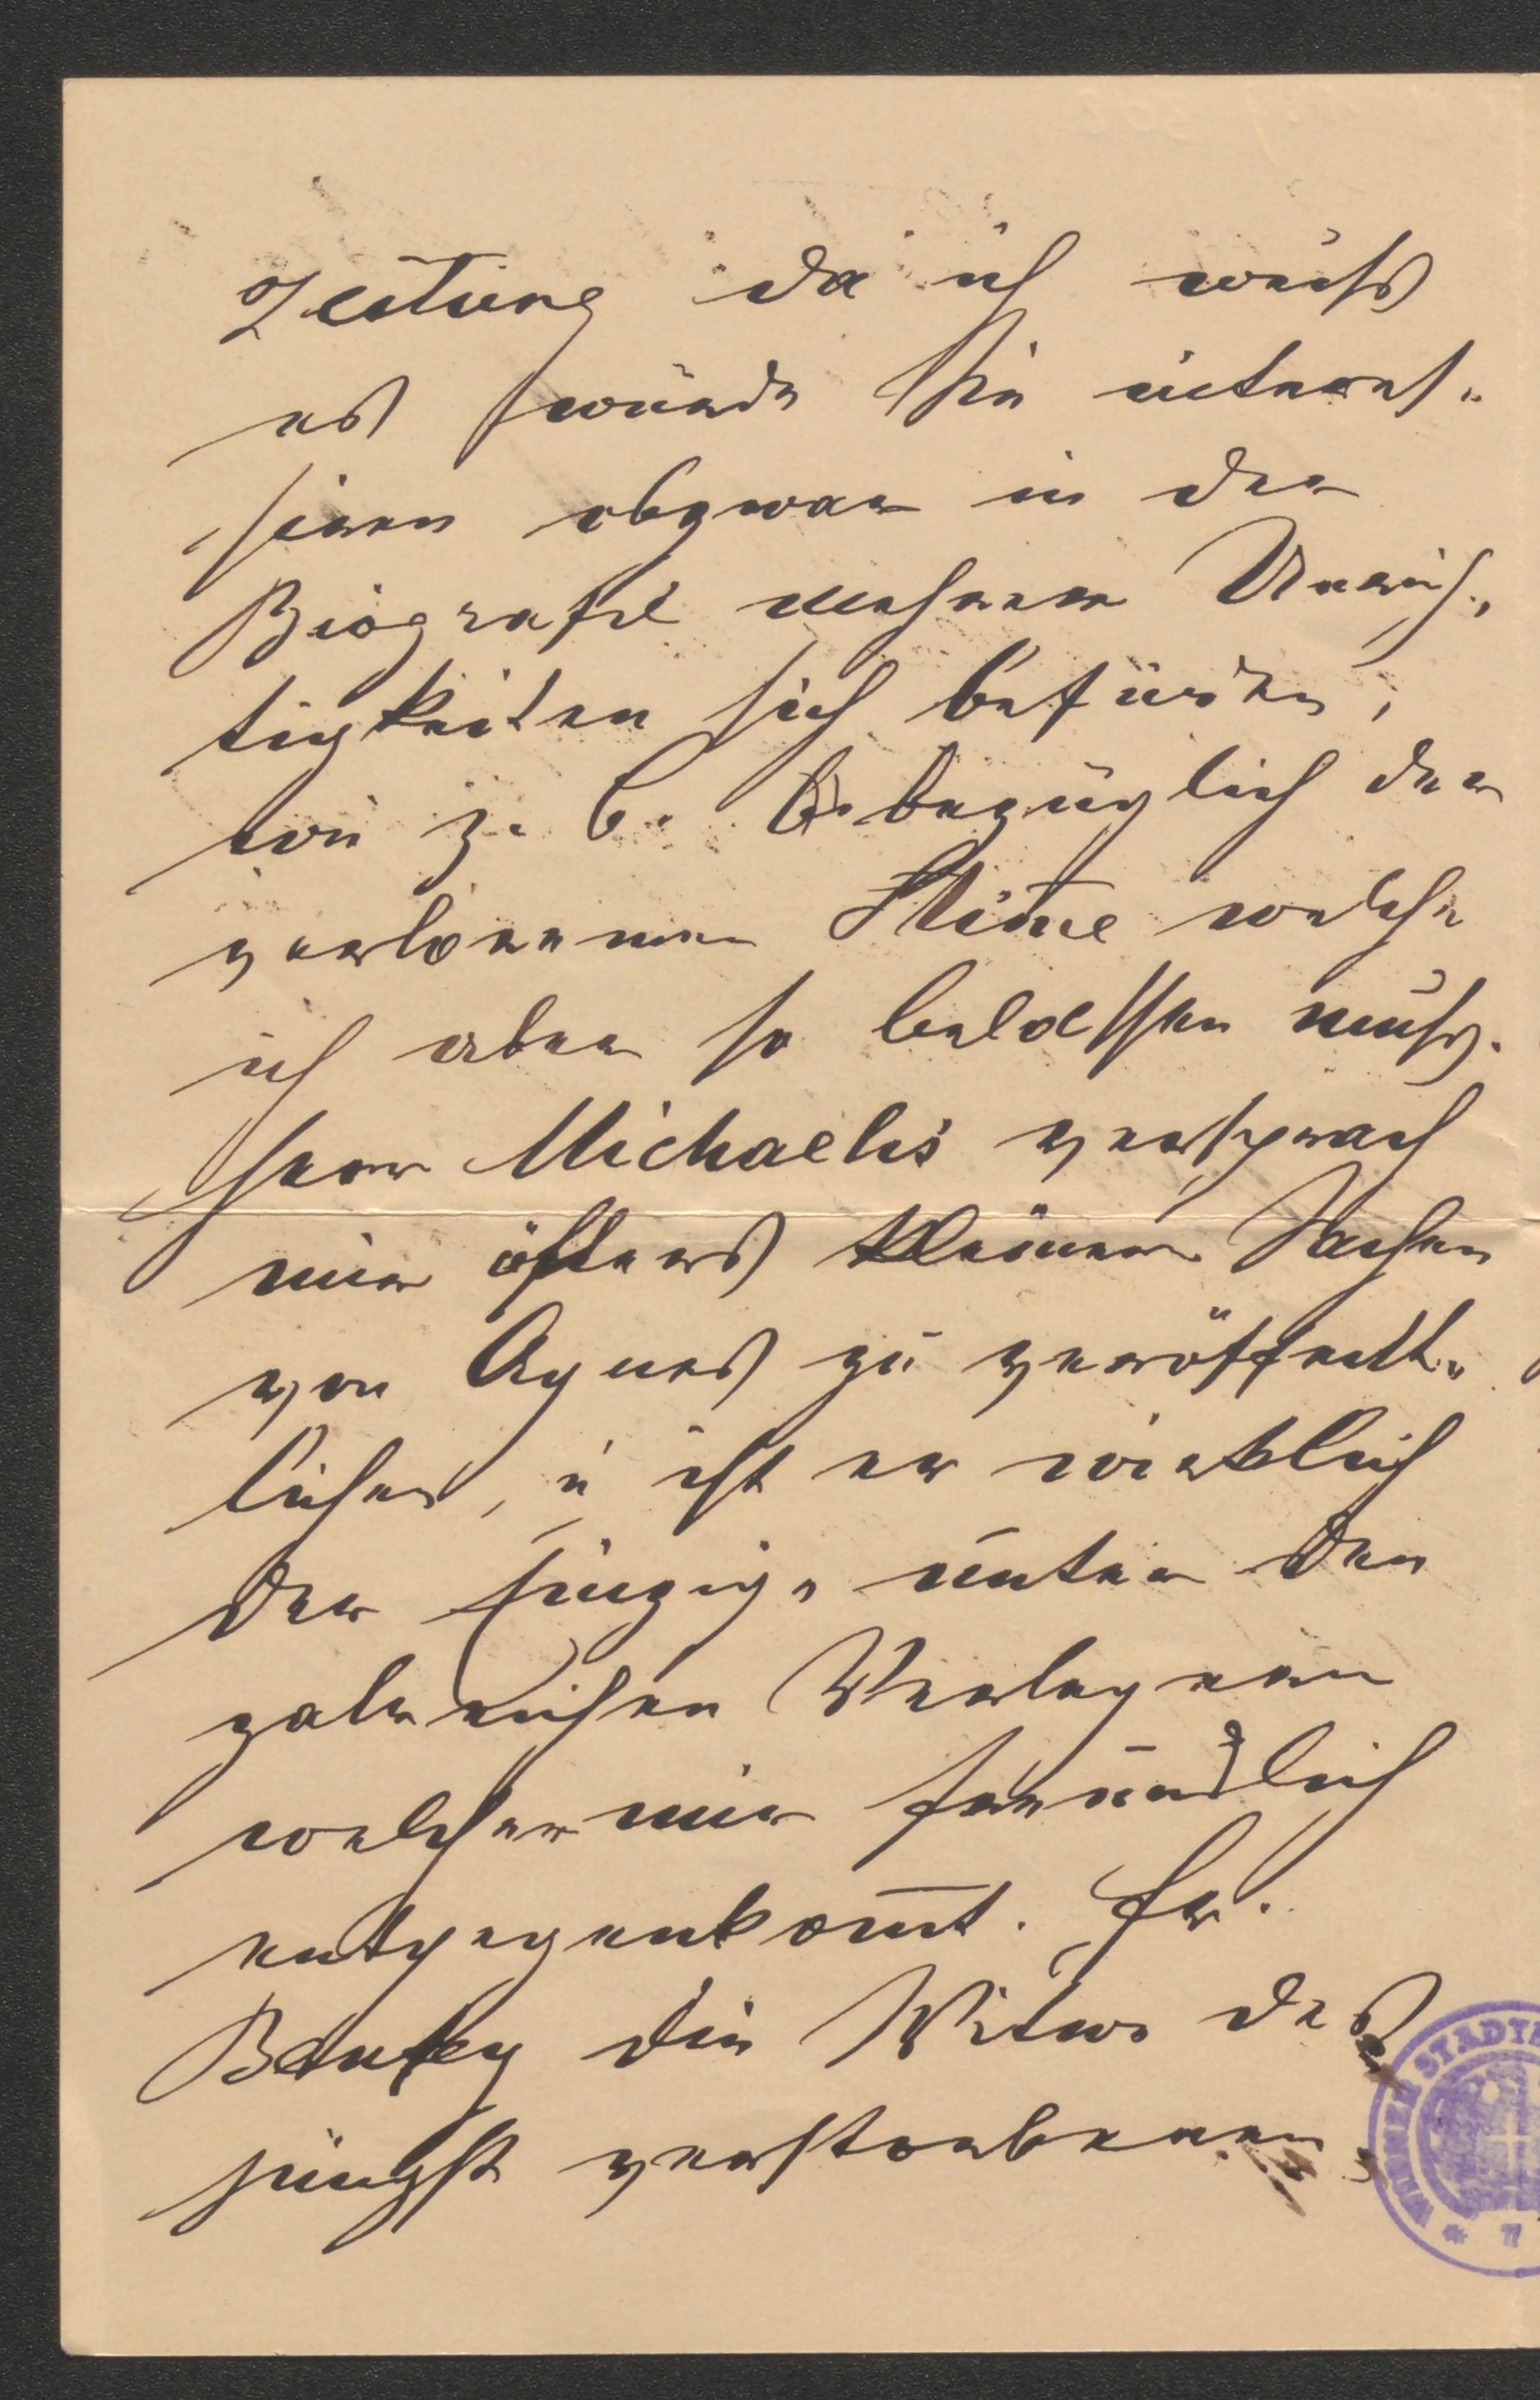 Zeitung da ich weiß
es würde Sie interes-
siren obzwar in der
Biografie mehrere Unrich-
tigkeiten sich befinden,
wie z. B. bezüglich der
verlorenen Stim̅e welche
ich aber so belassen muß.
Herr Michaelis versprach
mir öfters kleinere Sachen
von Agnes zu veröffent-
lichen, u ist er wirklich
der Einzige unter den
zalreichen Verlegern
welcher mir freundlich
entgegenkom̅t. Fr.
die Witwe des
jüngst verstorbenen
WIENER STADTB